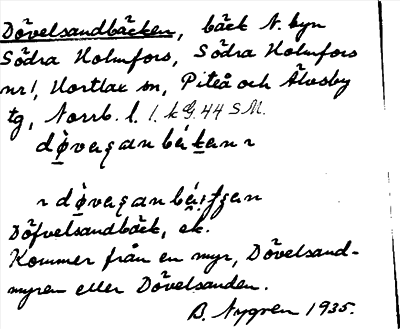 Dövelsandbäcken, bäck N. byn
Södra Holmfors, Södra Holmfors
nr 1, Hortlax sn, Piteå och Älvsby
tg, Norrb. l. 1. kG. 44 S.M.
Döfvelsandbäck, ek.
Kommer från en myr, Dövelsand-
myren eller Dövelsanden.
B. Nygren 1935.